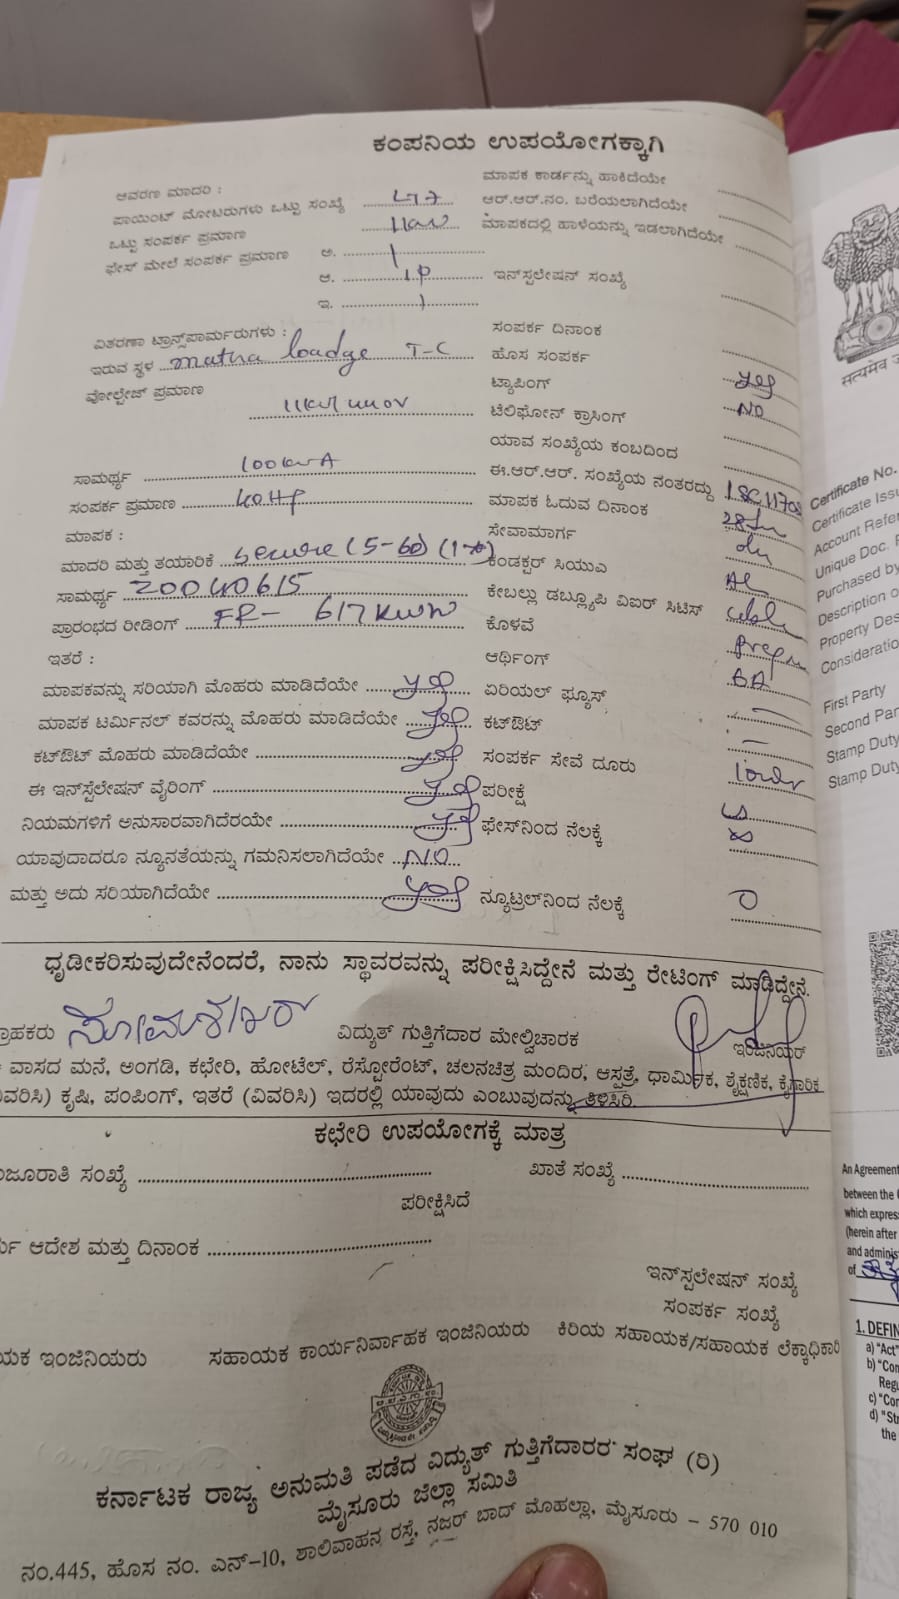 ಕಂಪನಿಯ ಉಪಯೋಗಕ್ಕಾಗಿ
ಆವರಣ ಮಾದರಿ :
ಪಾಯಿಂಟ್ ಮೋಟರುಗಳು ಒಟ್ಟು ಸಂಖ್ಯೆ
ಒಟ್ಟು ಸಂಪರ್ಕ ಪ್ರಮಾಣ 11kw
ಫೇಸ್ ಮೇಲೆ ಸಂಪರ್ಕ ಪ್ರಮಾಣ ಅ.
ಆ. 1p
ಇ.
ವಿತರಣಾ ಟ್ರಾನ್ಸ್‌ಪಾರ್ಮರುಗಳು :
ಇರುವ ಸ್ಥಳ matha loadge T-C
ವೋಲ್ಟೇಜ್ ಪ್ರಮಾಣ
ಸಾಮರ್ಥ್ಯ 100kvA
ಸಂಪರ್ಕ ಪ್ರಮಾಣ 40HP
ಮಾಪಕ :
ಮಾದರಿ ಮತ್ತು ತಯಾರಿಕೆ secure (5-60)
ಸಾಮರ್ಥ್ಯ 20040615
ಪ್ರಾರಂಭದ ರೀಡಿಂಗ್ FR- 617 kwh
ಇತರೆ :
ಮಾಪಕವನ್ನು ಸರಿಯಾಗಿ ಮೊಹರು ಮಾಡಿದೆಯೇ yes
ಮಾಪಕ ಟರ್ಮಿನಲ್ ಕವರನ್ನು ಮೊಹರು ಮಾಡಿದೆಯೇ yes
ಕಟ್‌ಔಟ್ ಮೊಹರು ಮಾಡಿದೆಯೇ yes
ಈ ಇನ್‌ಸ್ಟಲೇಷನ್ ವೈರಿಂಗ್ yes
ನಿಯಮಗಳಿಗೆ ಅನುಸಾರವಾಗಿದೆರಯೇ yes
ಯಾವುದಾದರೂ ನ್ಯೂನತೆಯನ್ನು ಗಮನಿಸಲಾಗಿದೆಯೇ NO
ಮತ್ತು ಅದು ಸರಿಯಾಗಿದೆಯೇ yes
ಮಾಪಕ ಕಾರ್ಡನ್ನು ಹಾಕಿದೆಯೇ
ಆರ್.ಆರ್.ನಂ. ಬರೆಯಲಾಗಿದೆಯೇ
ಮಾಪಕದಲ್ಲಿ ಹಾಳೆಯನ್ನು ಇಡಲಾಗಿದೆಯೇ
ಇನ್‌ಸ್ಪಲೇಷನ್ ಸಂಖ್ಯೆ
ಸಂಪರ್ಕ ದಿನಾಂಕ
ಹೊಸ ಸಂಪರ್ಕ yes
ಟ್ಯಾಪಿಂಗ್ NO
ಟೆಲಿಫೋನ್ ಕ್ರಾಸಿಂಗ್
ಯಾವ ಸಂಖ್ಯೆಯ ಕಂಬದಿಂದ
ಈ.ಆರ್.ಆರ್. ಸಂಖ್ಯೆಯ ನಂತರದ್ದು
ಮಾಪಕ ಓದುವ ದಿನಾಂಕ
ಸೇವಾಮಾರ್ಗ
ಕಂಡಕ್ಟರ್ ಸಿಯುವಿ AL
ಕೇಬಲ್ಲು ಡಬ್ಲ್ಯೂಪಿ ವಿಐರ್ ಸಿಟಿಸ್
ಕೊಳವೆ
ಆರ್ಥಿಂಗ್
ಏರಿಯಲ್ ಫ್ಯೂಸ್
ಕಟ್‌ಔಟ್
ಸಂಪರ್ಕ ಸೇವೆ ದೂರು
ಪರೀಕ್ಷೆ
ಫೇಸ್‌ನಿಂದ ನೆಲಕ್ಕೆ
ನ್ಯೂಟ್ರಲ್‌ನಿಂದ ನೆಲಕ್ಕೆ
ಧೃಡೀಕರಿಸುವುದೇನೆಂದರೆ, ನಾನು ಸ್ಥಾವರವನ್ನು ಪರೀಕ್ಷಿಸಿದ್ದೇನೆ ಮತ್ತು ರೇಟಿಂಗ್ ಮಾಡಿದ್ದೇನೆ.
ರಾಹಕರು ಸೋಮಶೇಖರ್ ವಿದ್ಯುತ್ ಗುತ್ತಿಗೆದಾರ ಮೇಲ್ವಿಚಾರಕ ಇಂಜಿನಿಯರ್
ವಾಸದ ಮನೆ, ಅಂಗಡಿ, ಕಛೇರಿ, ಹೋಟೆಲ್, ರೆಸ್ಟೋರೆಂಟ್, ಚಲನಚಿತ್ರ ಮಂದಿರ, ಆಸ್ಪತ್ರೆ, ಧಾರ್ಮಿಕ, ಶೈಕ್ಷಣಿಕ, ಕೈಗಾರಿಕ
ವಿವರಿಸಿ) ಕೃಷಿ, ಪಂಪಿಂಗ್, ಇತರೆ (ವಿವರಿಸಿ) ಇದರಲ್ಲಿ ಯಾವುದು ಎಂಬುವುದನ್ನು ತಿಳಿಸಿರಿ.
ಕಛೇರಿ ಉಪಯೋಗಕ್ಕೆ ಮಾತ್ರ
ಂಜೂರಾತಿ ಸಂಖ್ಯೆ ಖಾತೆ ಸಂಖ್ಯೆ
ಪರೀಕ್ಷಿಸಿದೆ
ಆದೇಶ ಮತ್ತು ದಿನಾಂಕ
ಇನ್‌ಸ್ಪಲೇಷನ್ ಸಂಖ್ಯೆ
ಸಂಪರ್ಕ ಸಂಖ್ಯೆ
ಯಕ ಇಂಜಿನಿಯರು ಸಹಾಯಕ ಕಾರ್ಯನಿರ್ವಾಹಕ ಇಂಜಿನಿಯರು ಕಿರಿಯ ಸಹಾಯಕ/ಸಹಾಯಕ ಲೆಕ್ಕಾಧಿಕಾರಿ
ಕರ್ನಾಟಕ ರಾಜ್ಯ ಅನುಮತಿ ಪಡೆದ ವಿದ್ಯುತ್ ಗುತ್ತಿಗೆದಾರರ ಸಂಘ (ರಿ)
ಮೈಸೂರು ಜಿಲ್ಲಾ ಸಮಿತಿ
ನಂ.445, ಹೊಸ ನಂ. ಎನ್-10, ಶಾಲಿವಾಹನ ರಸ್ತೆ, ನಜರ್ ಬಾದ್ ಮೊಹಲ್ಲಾ, ಮೈಸೂರು – 570 010
सत्यमेव ज
Certificate No.
Certificate Issu
Account Refer
Unique Doc. R
Purchased by
Description o
Property Des
Consideratio
First Party
Second Par
Stamp Duty
Stamp Duty
An Agreement
between the
which expres
(herein after
and adminis
of
1. DEFIN
a) "Act"
b) "Con
Regu
c) "Cor
d) "Str
the